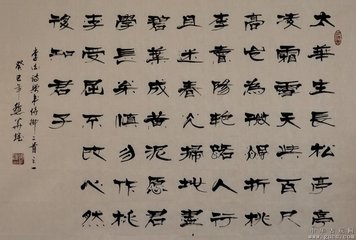 太華生長松亭亭
凌霜雪天與百尺
高豈為微飆折桃
李賣陽艷路人行
且迷春光掃地盡
碧葉成黃泥願君
學長松慎勿作桃
李受屈不改心然
後知君子
李白詩贈韋侍御二首之一
癸巳年